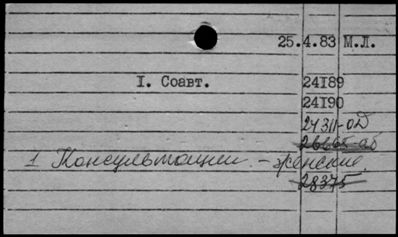 25.4.83 М.Л.
I. Соавт. 24I89
24I90
24311-оД
26665-аб
1 Консультации. - женские.
28375